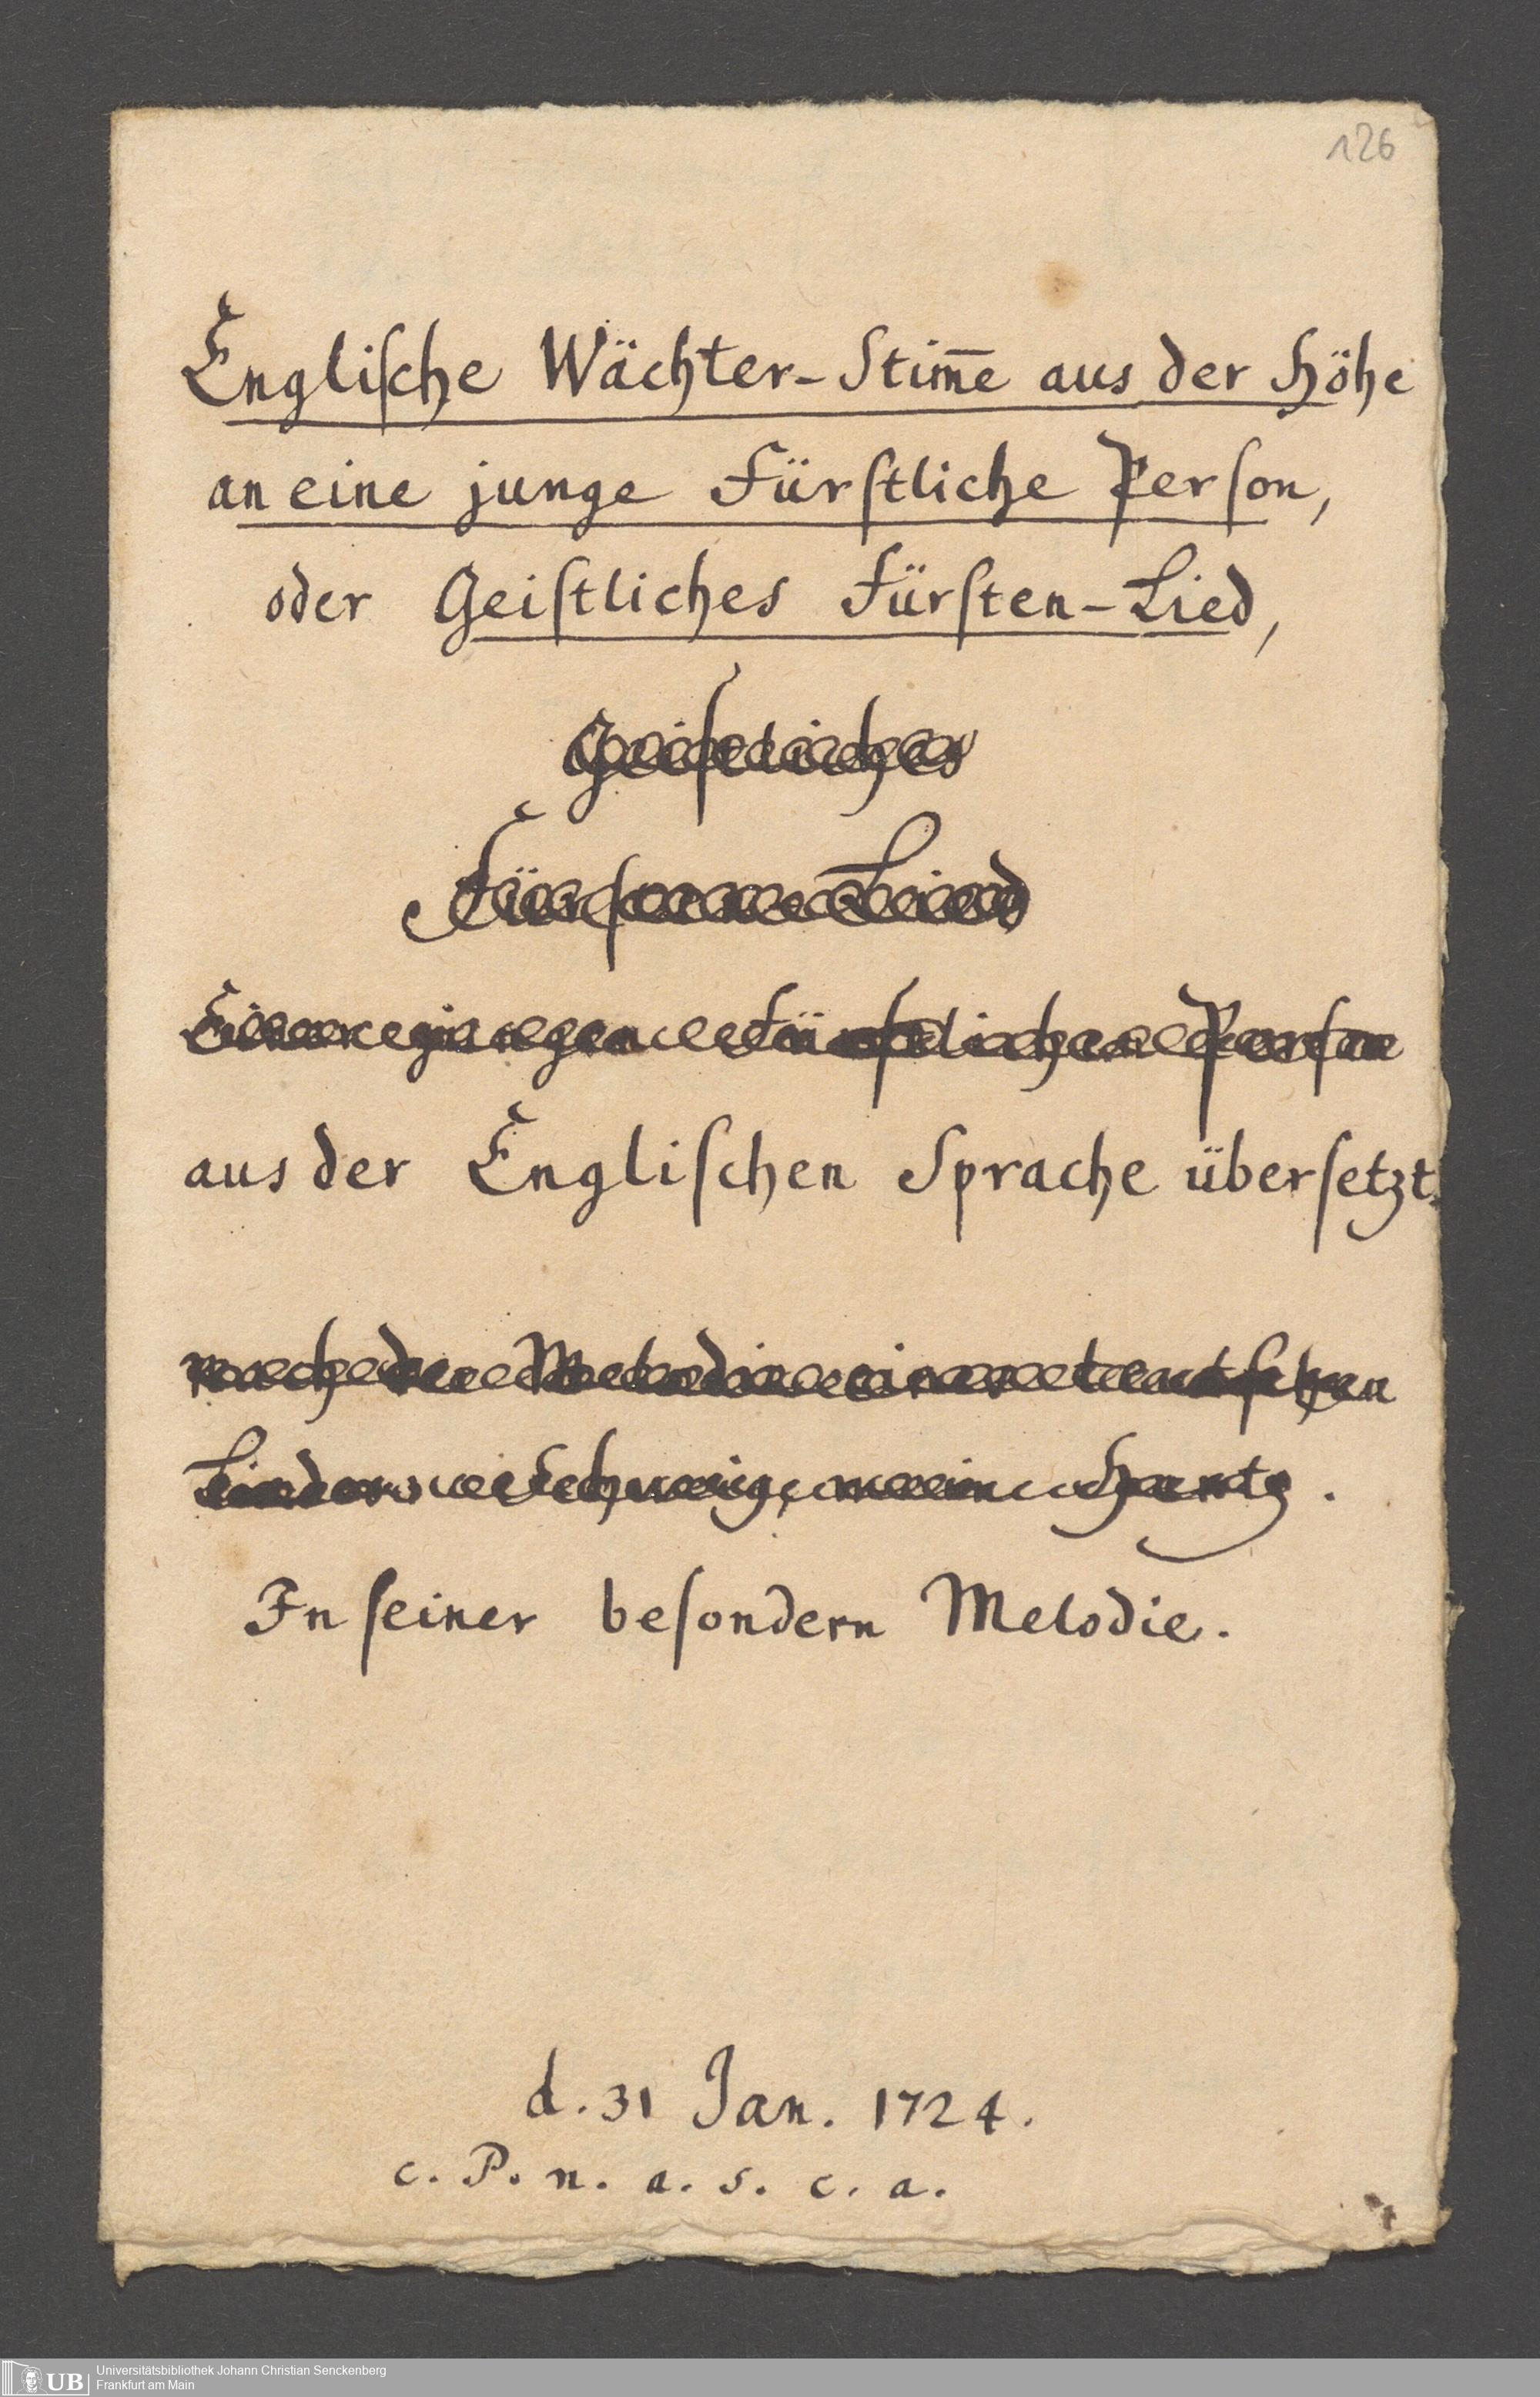 126
Engliſche Wächter-Stim̅e aus der Höhe
an eine junge Fürſtliche Perſon,
oder Geiſtliches Fürſten-Lied,
Geiſtliches
Fürſten-Lied
Einer jungen Fürſtlichen Perſon
aus der Engliſchen Sprache überſetzt.
nach der Melodie eines teutſchen
Liedes: Schweig, mein Hertz.
In ſeiner beſondern Melodie.
d. 31 Jan. 1724.
c. P. n. a. s. c. a.
UB Universitätsbibliothek Johann Christian Senckenberg
Frankfurt am Main